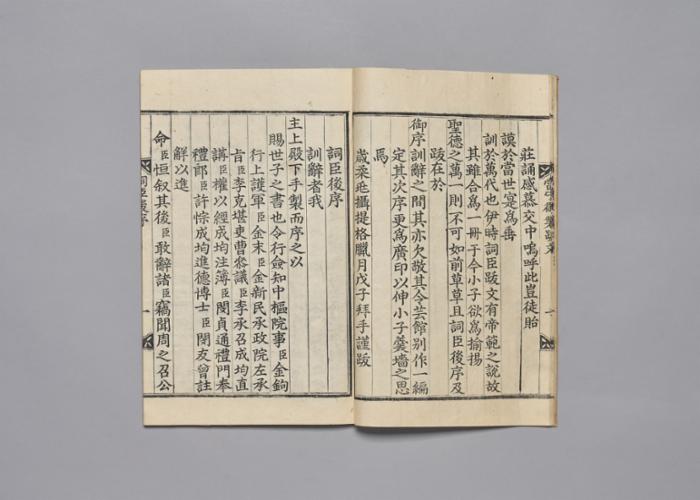 莊誦感慕交中嗚呼此豈徒貽
謨於當世寔爲垂
訓於萬代也伊時詞臣跋文有帝範之說故
其雖合爲一冊于今小子欲爲揄揚
聖德之萬一則不可如前草草且詞臣後序及
跋在於
御序訓辭之間其亦欠敬其令芸館別作一編
定其次序更爲廣印以伸小子羹墻之思
焉
歲柔兆攝提格臘月戊子拜手謹跋
詞臣後序
訓辭者我
主上殿下手製而序之以
賜世子之書也令行僉知中樞院事臣金鉤
行上護軍臣金末臣金新民承政院左承
旨臣李克堪吏曹參議臣李承召成均直
講臣權以經成均注簿臣閔貞通禮門奉
禮郎臣許悰成均進德博士臣閔友曾註
解以進
命臣恒叙其後臣敢辭諸臣竊聞周之召公
詞臣後序 一